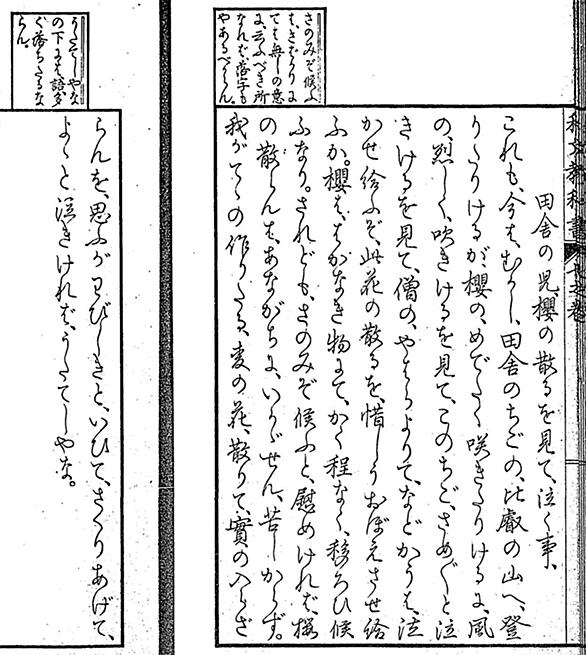 和文教科書
さのみぞ候ふ
は、さばかりに
ては無しの意
に、云ふべき所
なれば落字も
やあるべからん。
田舎の児櫻の散るを見て、泣く事、
これも、今はむかし、田舎のちごの、比叡の山へ、登
りたりけるが、櫻の、めでたく咲きたりけるに、風
の、烈しく、吹きけるを見て、このちご、さめ〴〵と泣
きけるを見て、僧の、やはらよりて、などかうは、泣
かせ給ふぞ、此花の散るを、惜しうおぼえさせ給
ふか。櫻は、はかなき物にて、かく程なく、移ろひ候
ふなり。されども、さのみぞ候ふと、慰めければ、櫻
の散らんは、あながちに、いかゞせん、苦しからず。
我がてゝの作りたる、麦の花、散りて、實の入らざ
うたてしやな
の下には、語多
く落ちたるな
らん。
らんを、思ふがわびしきと、いひて、さくりあげて、
よゝと泣きければ、うたてしやな。